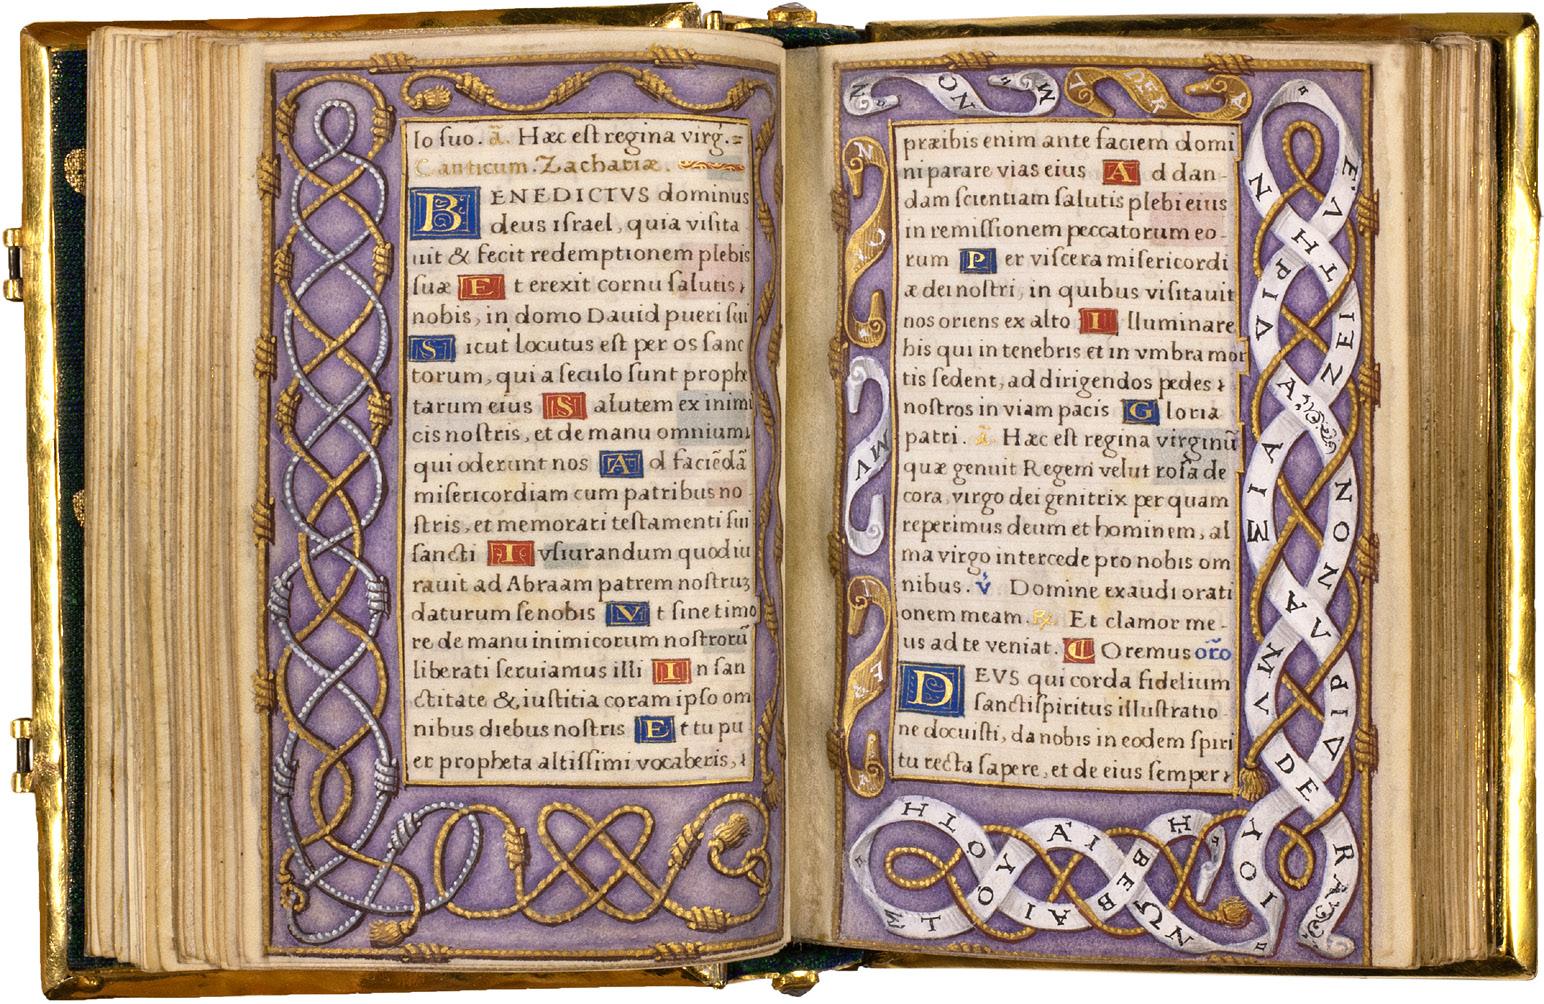 lo suo. ã. Hæc est regina virg̃.
Canticum. Zachariæ.
BENEDICTVS dominus
deus israel, quia visita
uit & fecit redemptionem plebis
suæ Et erexit cornu salutis
nobis, in domo Dauid pueri sui
Sicut locutus est per os sanc
torum, qui a seculo sunt prophe
tarum eius Salutem ex inimi
cis nostris, et de manu omnium
qui oderunt nos Ad faciẽdã
misericordiam cum patribus no
stris, et memorari testamenti sui
sancti Ivsiurandum quod iu
rauit ad Abraam patrem nostruʒ
daturum se nobis Vt sine timo
re de manu inimicorum nostrorũ
liberati seruiamus illi In san
ctitate & iustitia coram ipso om
nibus diebus nostris Et tu pu
er propheta altissimi vocaberis,
præibis enim ante faciem domi
ni parare vias eius Ad dan-
dam scientiam salutis plebi eius
in remissionem peccatorum eo-
rum Per viscera misericordi
æ dei nostri, in quibus visitauit
nos oriens ex alto Illuminare
his qui in tenebris et in vmbra mor
tis sedent, ad dirigendos pedes
nostros in viam pacis Gloria
patri. ã. Hæc est regina virginũ
quæ genuit Regem velut rosa de
cora, virgo dei genitrix per quam
reperimus deum et hominem, al
ma virgo intercede pro nobis om
nibus. v̓ Domine exaudi orati
onem meam. ꝶ. Et clamor me-
us ad te veniat. COremus orõ
DEVS qui corda fidelium
sancti spiritus illustratio-
ne docuisti, da nobis in eodem spiri
tu recta sapere, et de eius semper